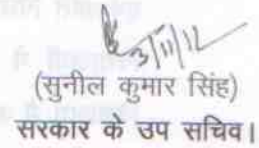 3/11/12
(सुनील कुमार सिंह)
सरकार के उप सचिव।